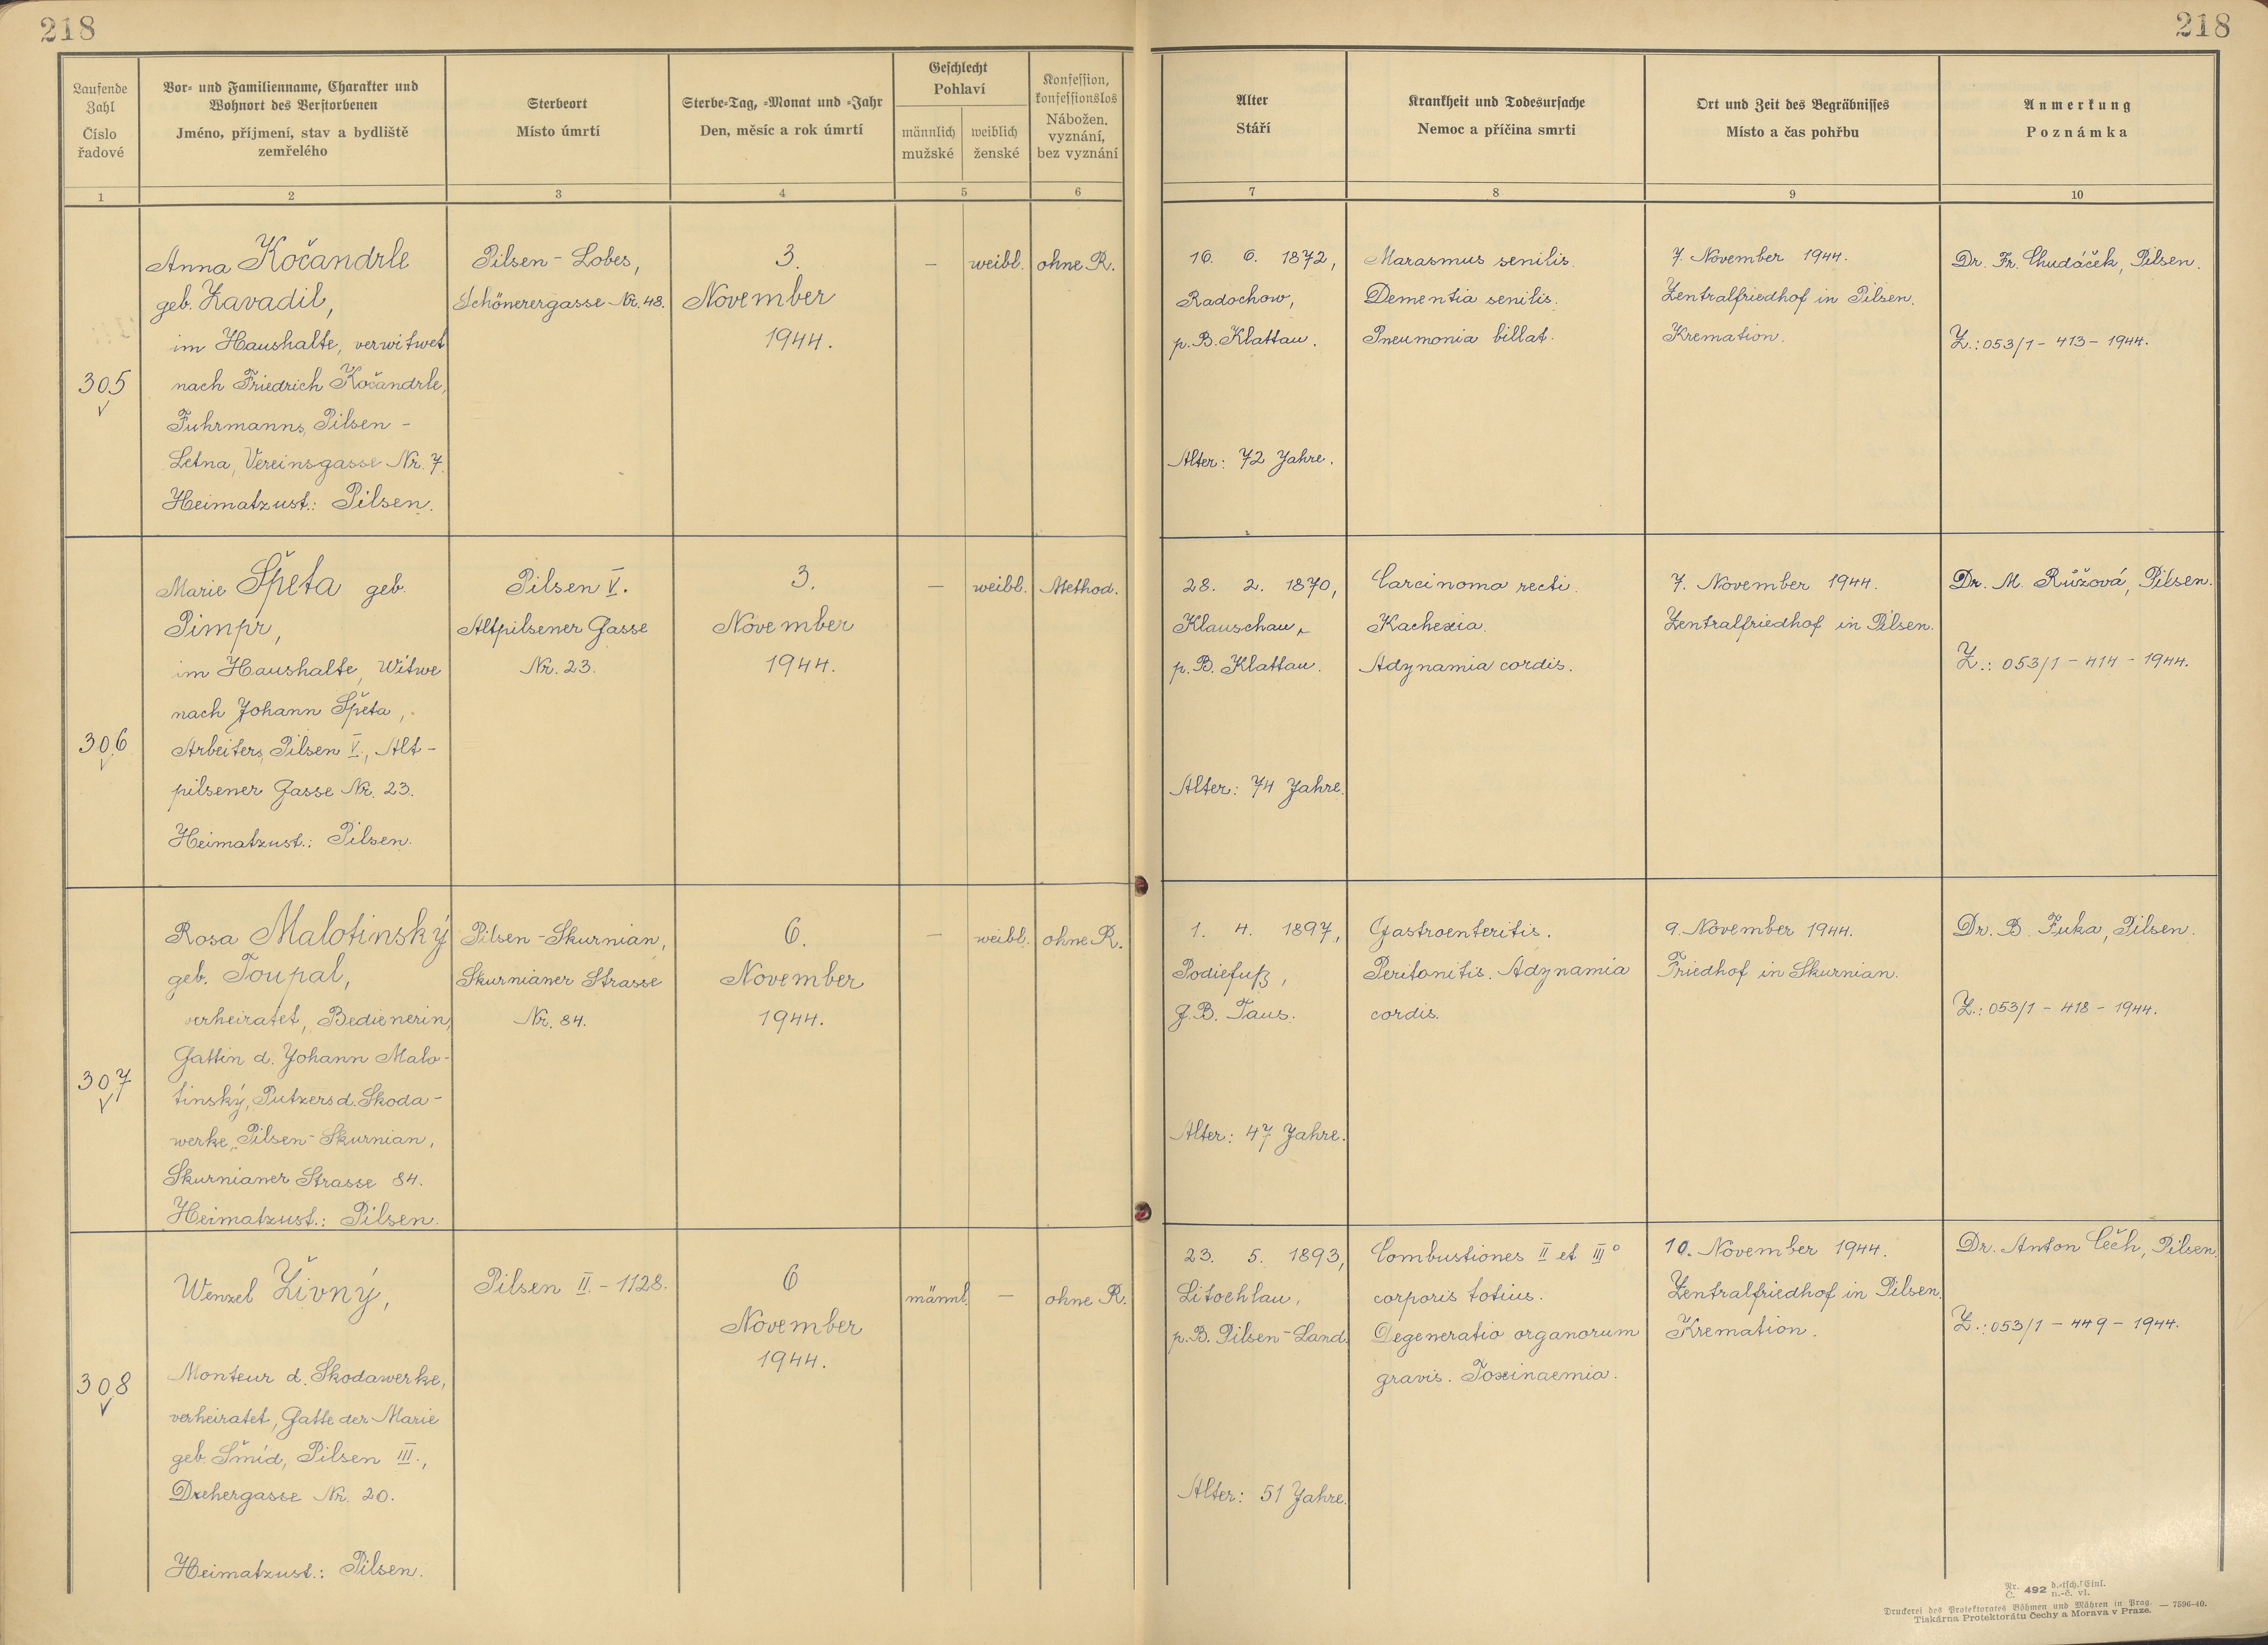 218
218
Laufende Zahl
Číslo řadové
Vor- und Familienname, Charakter und
Wohnort des Verstorbenen
Jméno, příjmení, stav a bydliště
zemřelého
Sterbeort
Místo úmrtí
Sterbe-Tag, -Monat und -Jahr
Den, měsíc a rok úmrtí
Geschlecht
Pohlaví
männlich
mužské
weiblich
ženské
Konfession,
konfessionslos
Nábožen.
vyznání,
bez vyznání
Alter
Stáří
Krankheit und Todesursache
Nemoc a příčina smrti
Ort und Zeit des Begräbnisses
Místo a čas pohřbu
Anmerkung
Poznámka
1
2
3
4
5
6
7
8
9
10
305
Anna Kočandrle
geb. Zavadil,
im Haushalte, verwitwet
nach Friedrich Kočandrle,
Fuhrmanns, Pilsen -
Letna, Vereinsgasse Nr. 7.
Heimatzust.: Pilsen.
Pilsen - Lobes,
Schönerergasse Nr. 48.
3.
November
1944.
—
weibl.
ohne R.
16. 6. 1872,
Radochow,
p. B. Klattau.
Alter: 72 Jahre.
Marasmus senilis.
Dementia senilis.
Pneumonia billat.
7. November 1944.
Zentralfriedhof in Pilsen.
Kremation.
Dr. Fr. Chudáček, Pilsen.
Z.: 053/1 - 413 - 1944.
306
Marie Špeta geb.
Pimpr,
im Haushalte, Witwe
nach Johann Špeta,
Arbeiters, Pilsen V., Alt-
pilsener Gasse Nr. 23.
Heimatzust.: Pilsen.
Pilsen V.
Altpilsener Gasse
Nr. 23.
3.
November
1944.
—
weibl.
Method.
28. 2. 1870,
Klauschau,
p. B. Klattau.
Alter: 74 Jahre.
Carcinoma recti.
Kachexia.
Adynamia cordis.
7. November 1944.
Zentralfriedhof in Pilsen.
Dr. M. Růžová, Pilsen.
Z.: 053/1 - 414 - 1944.
307
Rosa Malotinský
geb. Toupal,
verheiratet, Bedienerin,
Gattin d. Johann Malo-
tinský, Putzers d. Skoda-
werke, Pilsen - Skurnian,
Skurnianer Strasse 84.
Heimatzust.: Pilsen.
Pilsen - Skurnian,
Skurnianer Strasse
Nr. 84.
6.
November
1944.
—
weibl.
ohne R.
1. 4. 1897,
Podiefuß,
G. B. Taus.
Alter: 47 Jahre.
Gastroenteritis.
Peritonitis. Adynamia
cordis.
9. November 1944.
Friedhof in Skurnian.
Dr. B. Fuka, Pilsen.
Z.: 053/1 - 418 - 1944.
308
Wenzel Živný,
Monteur d. Skodawerke,
verheiratet, Gatte der Marie
geb. Šmíd, Pilsen III.,
Drehergasse Nr. 20.
Heimatzust.: Pilsen.
Pilsen II. - 1128.
6
November
1944.
männl.
—
ohne R.
23. 5. 1893,
Litochlau,
p. B. Pilsen - Land.
Alter: 51 Jahre.
Combustiones II et III°
corporis totius.
Degeneratio organorum
gravis. Toxinaemia.
10. November 1944.
Zentralfriedhof in Pilsen.
Kremation.
Dr. Anton Čěh, Pilsen.
Z.: 053/1 - 449 - 1944.
Nr. Č. 492 d.-tsch. Einl. n.-č. vl.
Druckerei des Protektorates Böhmen und Mähren in Prag. — 7596-40.
Tiskárna Protektorátu Čechy a Morava v Praze.